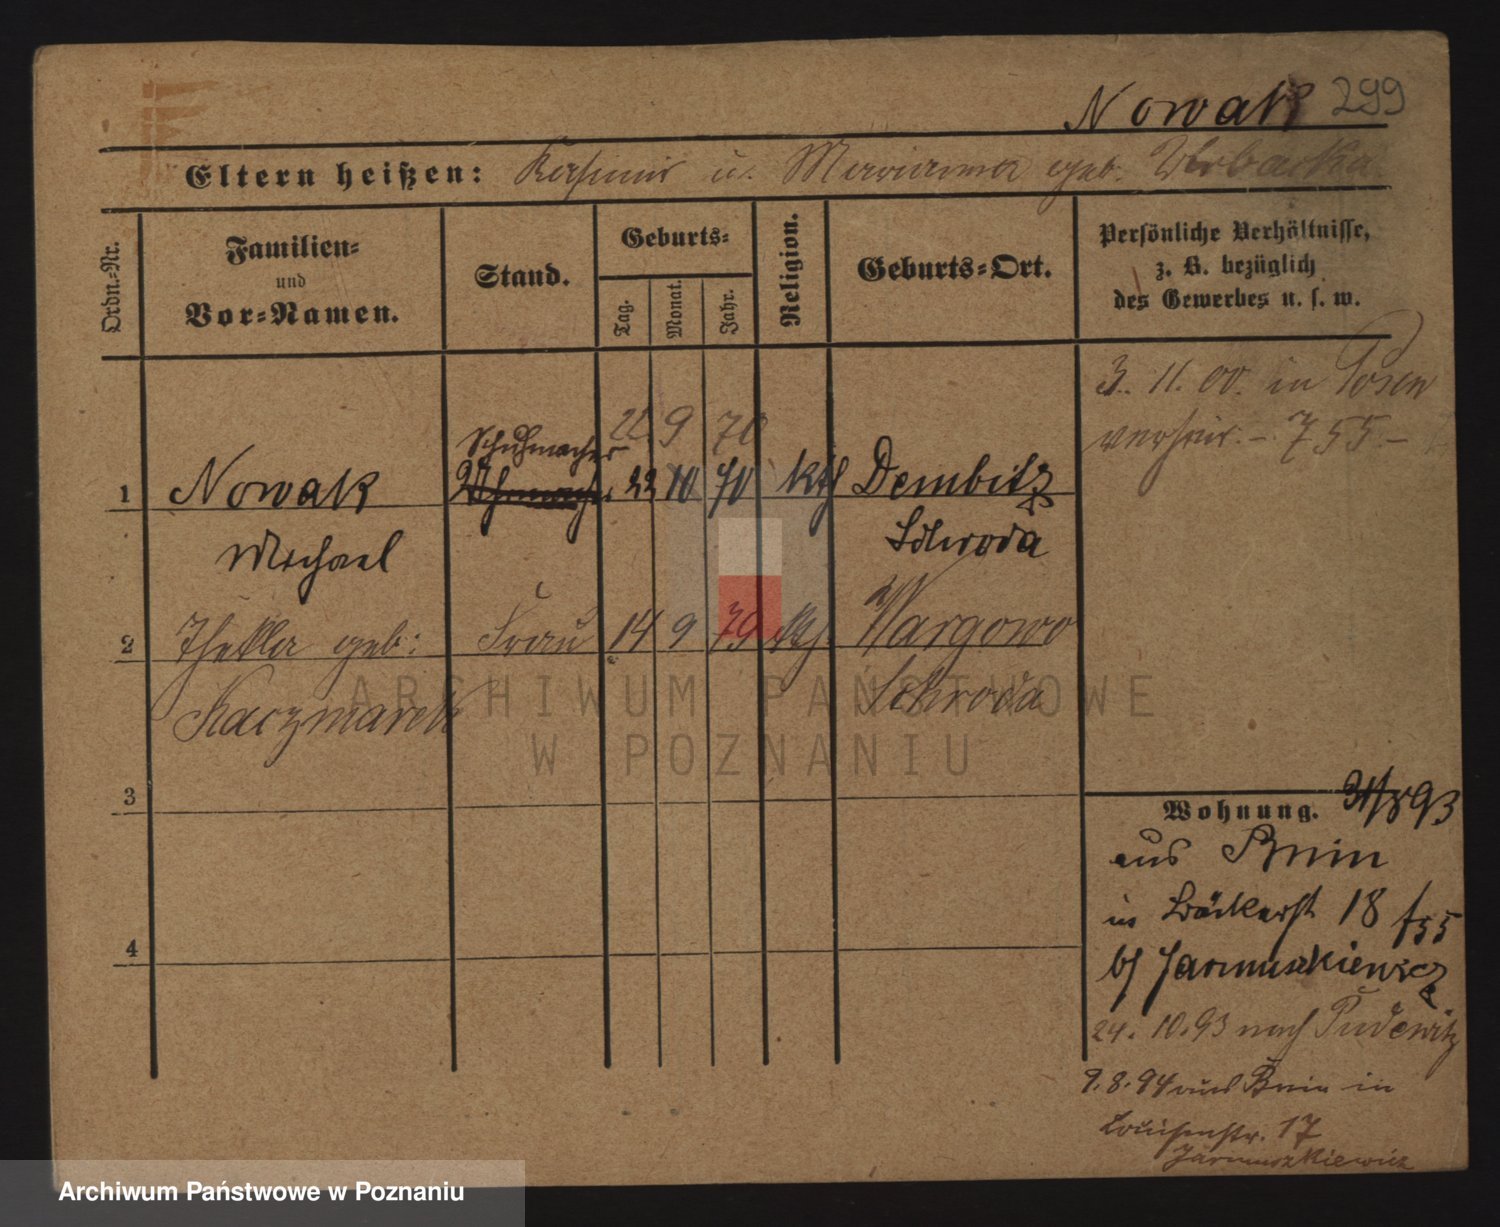 Nowak 299
Eltern heißen: Kasimir u. Marianna geb. Urbacka
Ordn.-Nr.
Familien-
und
Vor-Namen.
Stand.
Geburts-
Tag.
Monat.
Jahr.
Religion.
Geburts-Ort.
Persönliche Verhältnisse,
z. B. bezüglich
des Gewerbes u. s. w.
3. 11. 00. in Posen
verheir. - 755 -
Schuhmacher 22 9 70
1 Nowak 22 10 70 kth Dembitz
Michael Schroda
2 Thekla geb: Frau 14 9 79 kth. Wargowo
Kaczmarek Schroda
3
4
Wohnung. 31/8 93
aus Bnin
in Bäckerst 18 f55
b/ Jarmuszkiewicz
24. 10. 93 nach Pudewitz
9. 8. 94 aus Bnin in
Louisenstr. 17
Jarmuszkiewicz
ARCHIWUM PAŃSTWOWE
W POZNANIU
Archiwum Państwowe w Poznaniu